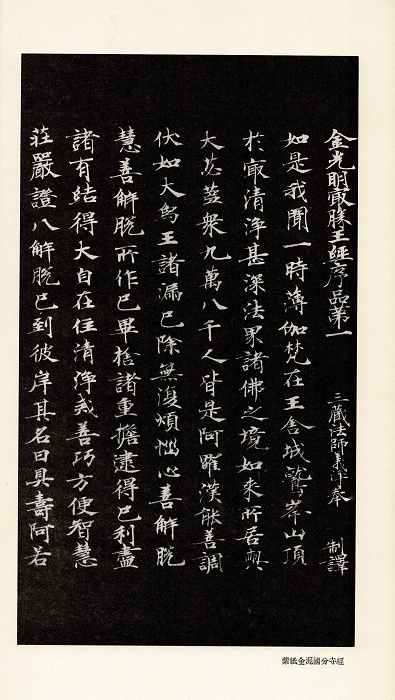 金光明㝡勝王經序品第一 三藏法師義淨奉 制譯
如是我聞一時薄伽梵在王舍城鷲峯山頂
於㝡清淨甚深法界諸佛之境如來所居與
大苾蒭衆九萬八千人皆是阿羅漢能善調
伏如大象王諸漏已除無復煩惱心善解脫
慧善解脫所作已畢捨諸重擔逮得已利盡
諸有結得大自在住清淨戒善巧方便智慧
莊嚴證八解脫已到彼岸其名曰具壽阿若
紫紙金泥國分寺經